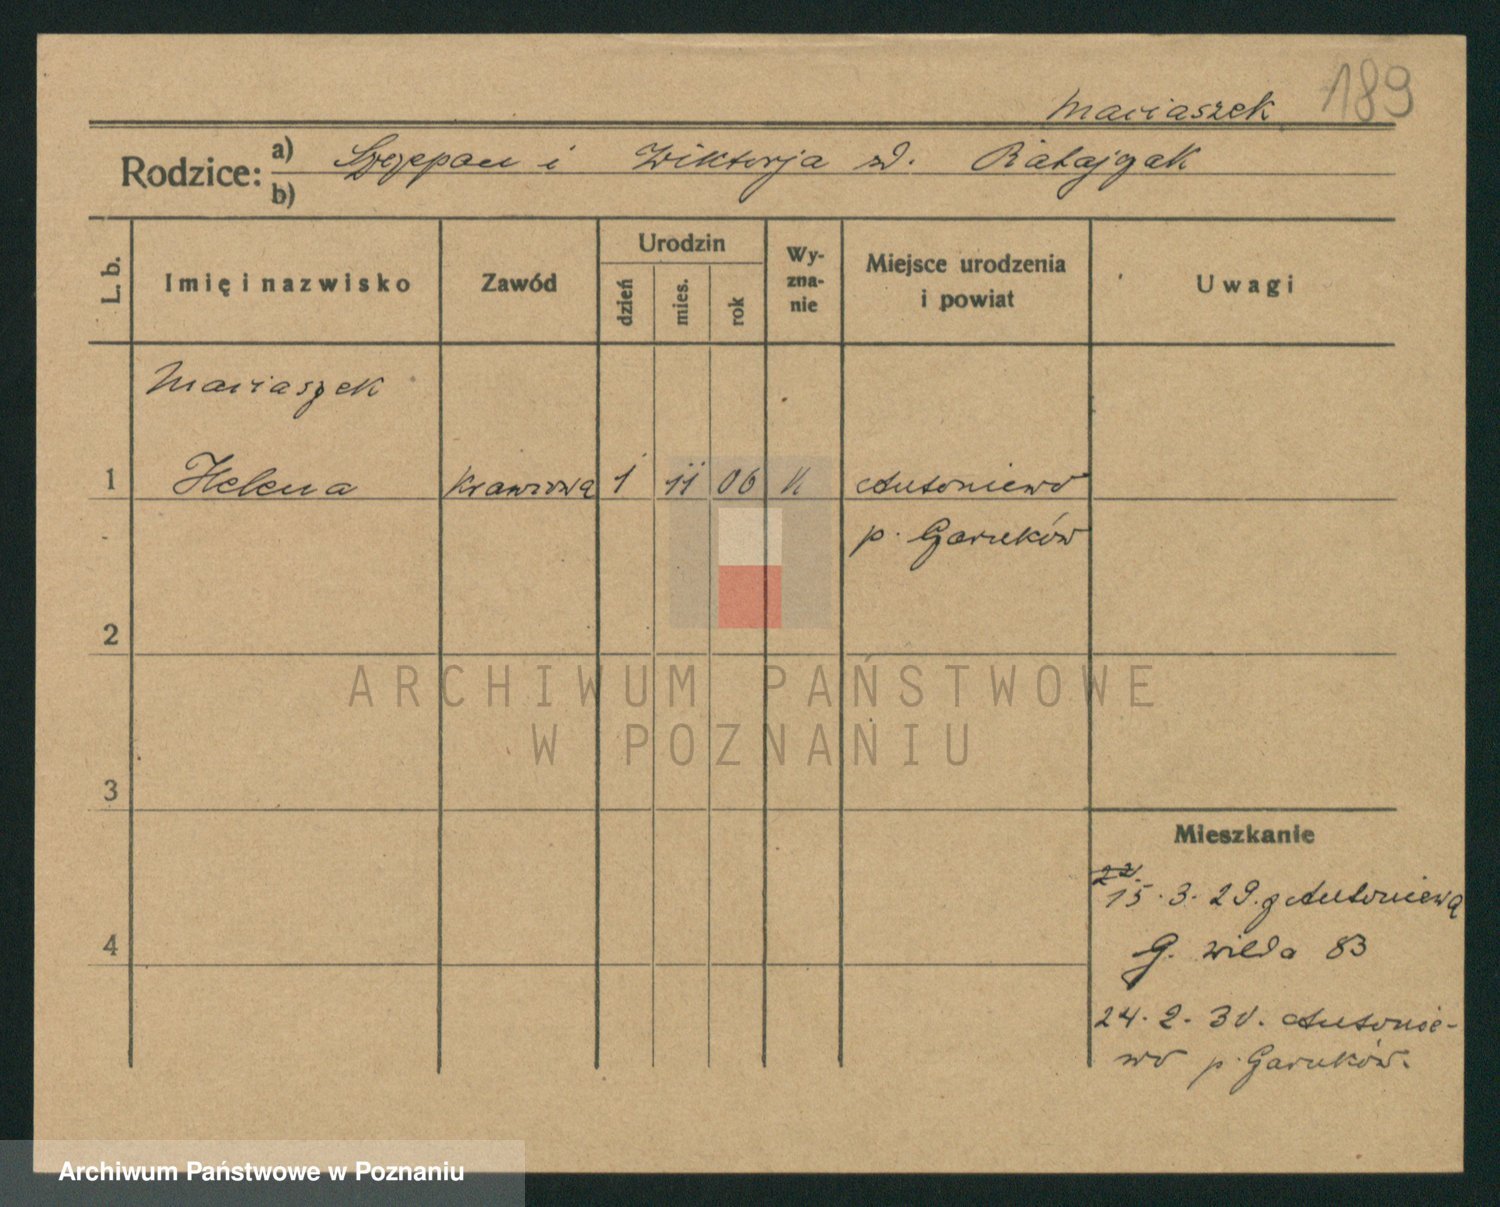 189
Maciaszek
Rodzice: a) Szczepan i Wiktorja zd. Ratajczak
b)
L. b.
Imię i nazwisko
Zawód
Urodzin
dzień
mies.
rok
Wy-
zna-
nie
Miejsce urodzenia
i powiat
Uwagi
Maciaszek
1 Helena krawcowa 1 11 06 k Antoniewo
p. Czarnków
2
3
4
Mieszkanie
22.
15.3.29. z Antoniewa
G. Wilda 83
24.2.30. Antonie-
wo p. Czarnków.
ARCHIWUM PAŃSTWOWE
W POZNANIU
Archiwum Państwowe w Poznaniu